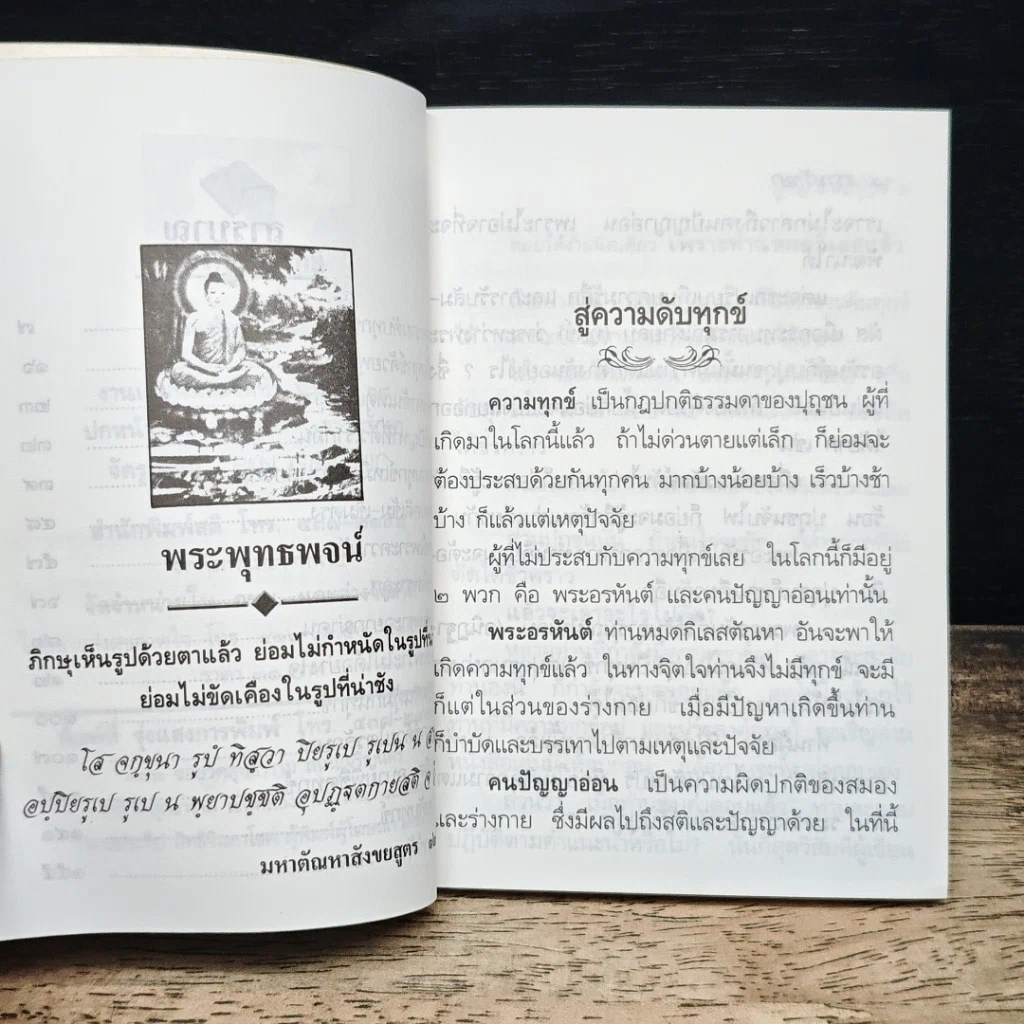 พระพุทธพจน์
ภิกษุเห็นรูปด้วยตาแล้ว ย่อมไม่กำหนัดในรูปที่
ย่อมไม่ขัดเคืองในรูปที่น่าชัง
โส จกฺขุนา รูปํ ทิสฺวา ปิยรูเป รูเปน น
อปฺปิยรูเป รูเป น พฺยาปชฺชติ อุปฏฺฐิตกายสติ
มหาตัณหาสังขยสูตร
สู่ความดับทุกข์
ความทุกข์ เป็นกฎปกติธรรมดาของปุถุชน ผู้ที่
เกิดมาในโลกนี้แล้ว ถ้าไม่ด่วนตายแต่เล็ก ก็ย่อมจะ
ต้องประสบด้วยกันทุกคน มากบ้างน้อยบ้าง เร็วบ้างช้า
บ้าง ก็แล้วแต่เหตุปัจจัย
ผู้ที่ไม่ประสบกับความทุกข์เลย ในโลกนี้ก็มีอยู่
๒ พวก คือ พระอรหันต์ และคนปัญญาอ่อนเท่านั้น
พระอรหันต์ ท่านหมดกิเลสตัณหา อันจะพาให้
เกิดความทุกข์แล้ว ในทางจิตใจท่านจึงไม่มีทุกข์ จะมี
ก็แต่ในส่วนของร่างกาย เมื่อมีปัญหาเกิดขึ้นท่าน
ก็บำบัดและบรรเทาไปตามเหตุและปัจจัย
คนปัญญาอ่อน เป็นความผิดปกติของสมอง
และร่างกาย ซึ่งมีผลไปถึงสติและปัญญาด้วย ในที่นี้